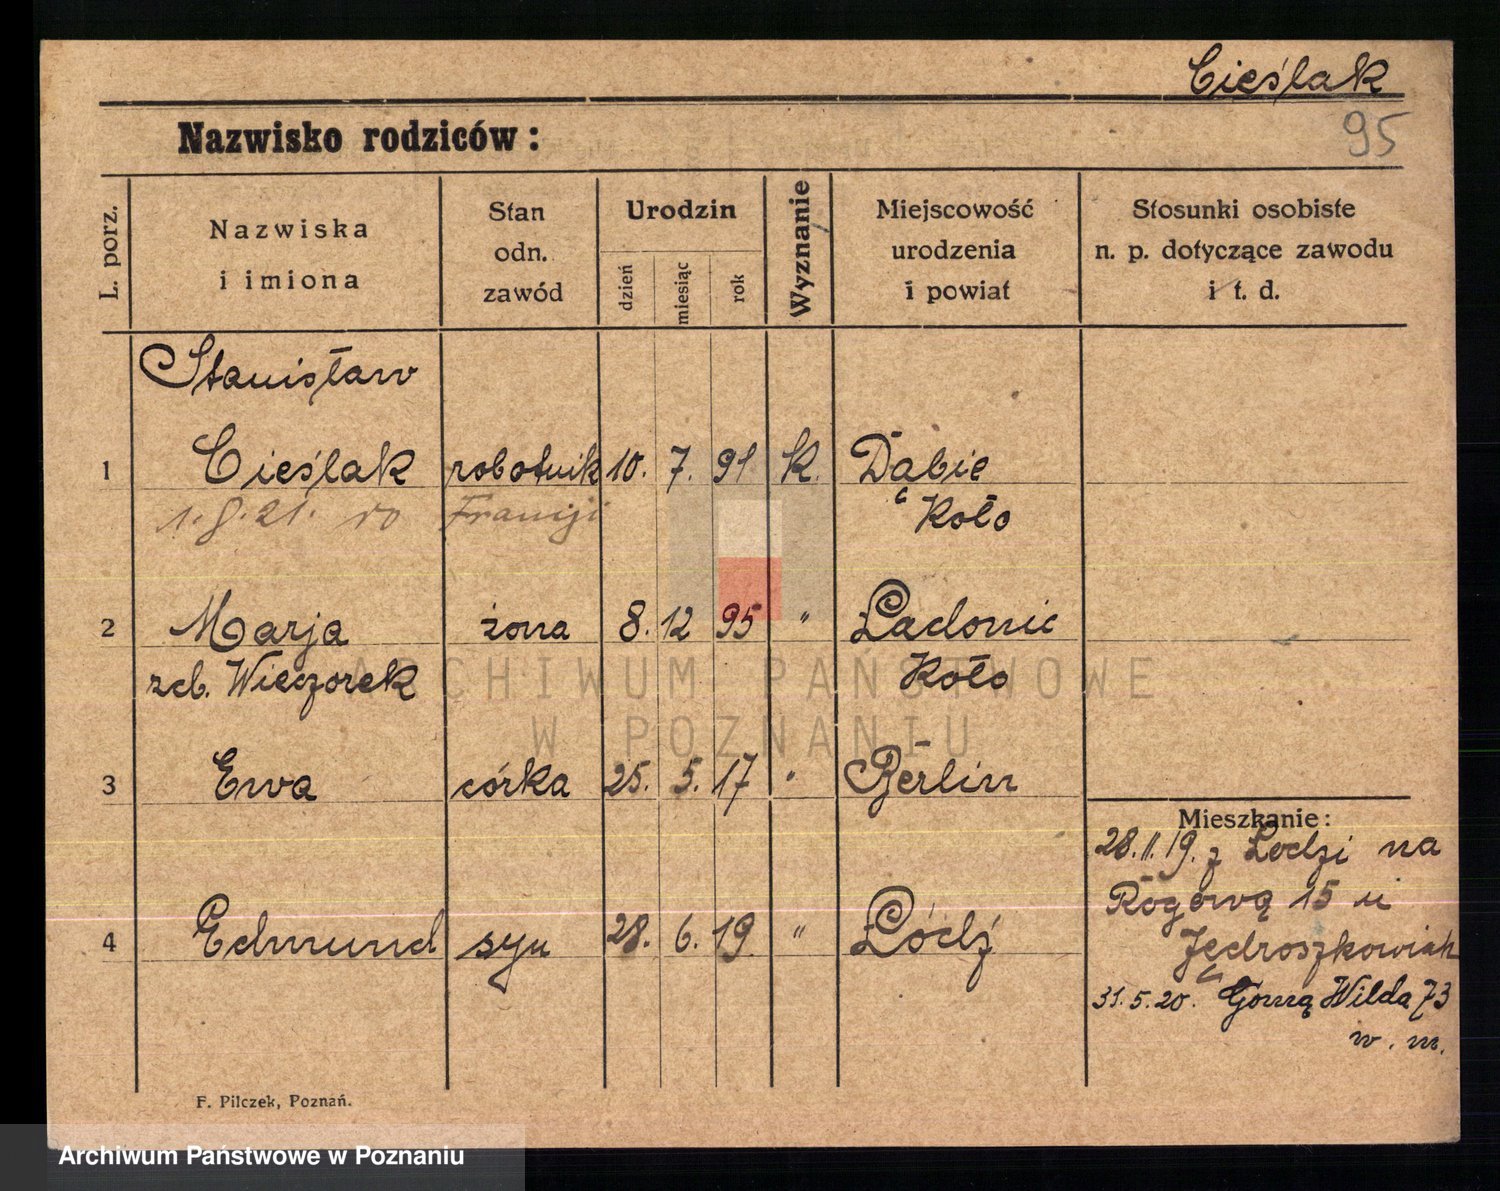 Cieślak
95
Nazwisko rodziców:
L. porz.
Nazwiska
i imiona
Stan
odn.
zawód
Urodzin
dzień
miesiąc
rok
Wyznanie
Miejscowość
urodzenia
i powiat
Stosunki osobiste
n. p. dotyczące zawodu
i t. d.
Stanisław
1 Cieślak robotnik 10. 7. 91 K. Dąbie
1. 8. 21. do Francji Koło
2 Marja żona 8. 12 95 " Ladonie
zıb. Wieczorek Koło
3 Ewa córka 25. 5. 17 " Berlin
Mieszkanie:
28.11.19. z Łodzi na
Rogową 15 u
4 Edmund syn 28. 6. 19. " Łódź
Jędroszkowiak
31.5.20. Górną Wilda 73
w. m.
F. Pilczek, Poznań.
ARCHIWUM PAŃSTWOWE
W POZNANIU
Archiwum Państwowe w Poznaniu